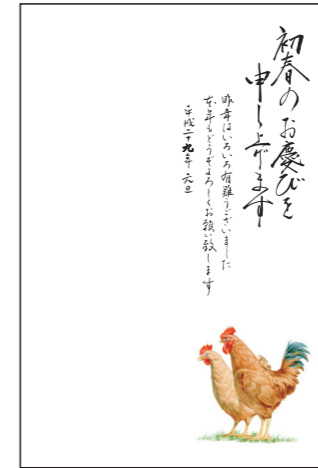 初春のお慶びを
申し上げます
昨年はいろいろ有難うございました
本年もどうぞよろしくお願い致します
平成二十九年 元旦